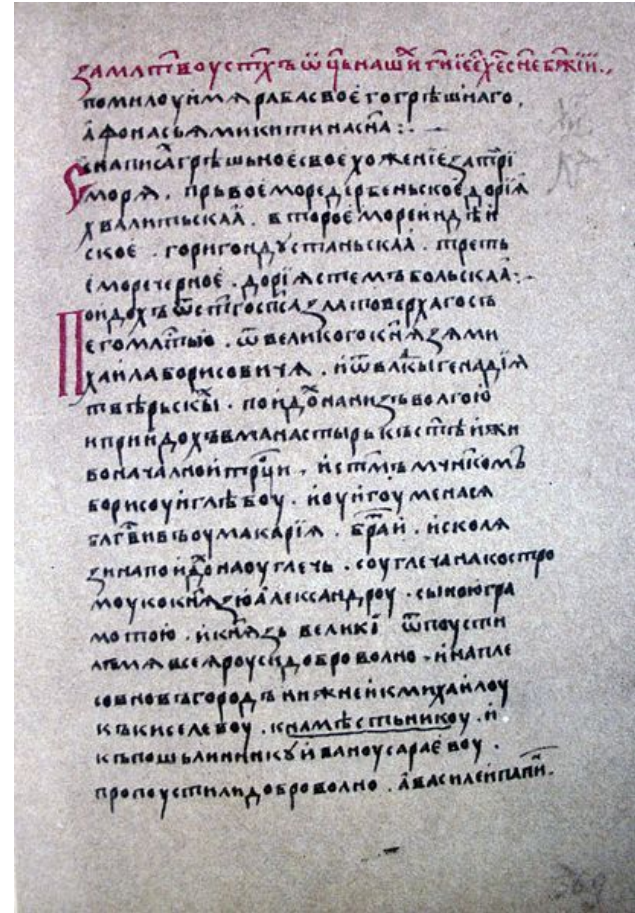 за млтвоу стхъ ѿць наши ги іс хе сне бжіи
помилоуи мѧ раба своего грѣшнаго
афонасьѧ микитина сна
написа грѣшьное свое хоженіе за три
морѧ . прьвое море дербеньское доріѧ
хвалитьскаа . второе море индѣи
ское . гориг ондустаньскаа . треть
е море черное . доріѧ стемъбольскаа
поидохъ ѿ спса златоверхаго съ
его млтью . ѿ великого кнѧзѧ ми
хаила борисовичѧ . и ѿ влкы генадіѧ
твѣрьскы . поидо на низъ волгою
и приидохъ в манастырь къ стѣи жи
воначалнои трци . и стмъ мчнкомъ
борисоу и глѣбоу . и оу игоумена сѧ
блгвивъ оу макаріѧ . браи . и с колѧ
зина поидо на оуглечь . с оуглеча на костро
моу ко кнѧзю александроу . с ыною гра
мотою . и кнѧзь велики ѿпоусти
лъ мѧ всеѧ роуси доброволно . и на пле
со в новъгородъ нижнеи к михаилоу
къ киселевоу . к намѣстьникоу . и
къ пошьлиннику иваноу сараевоу .
пропоустили доброволно . а василеи папи